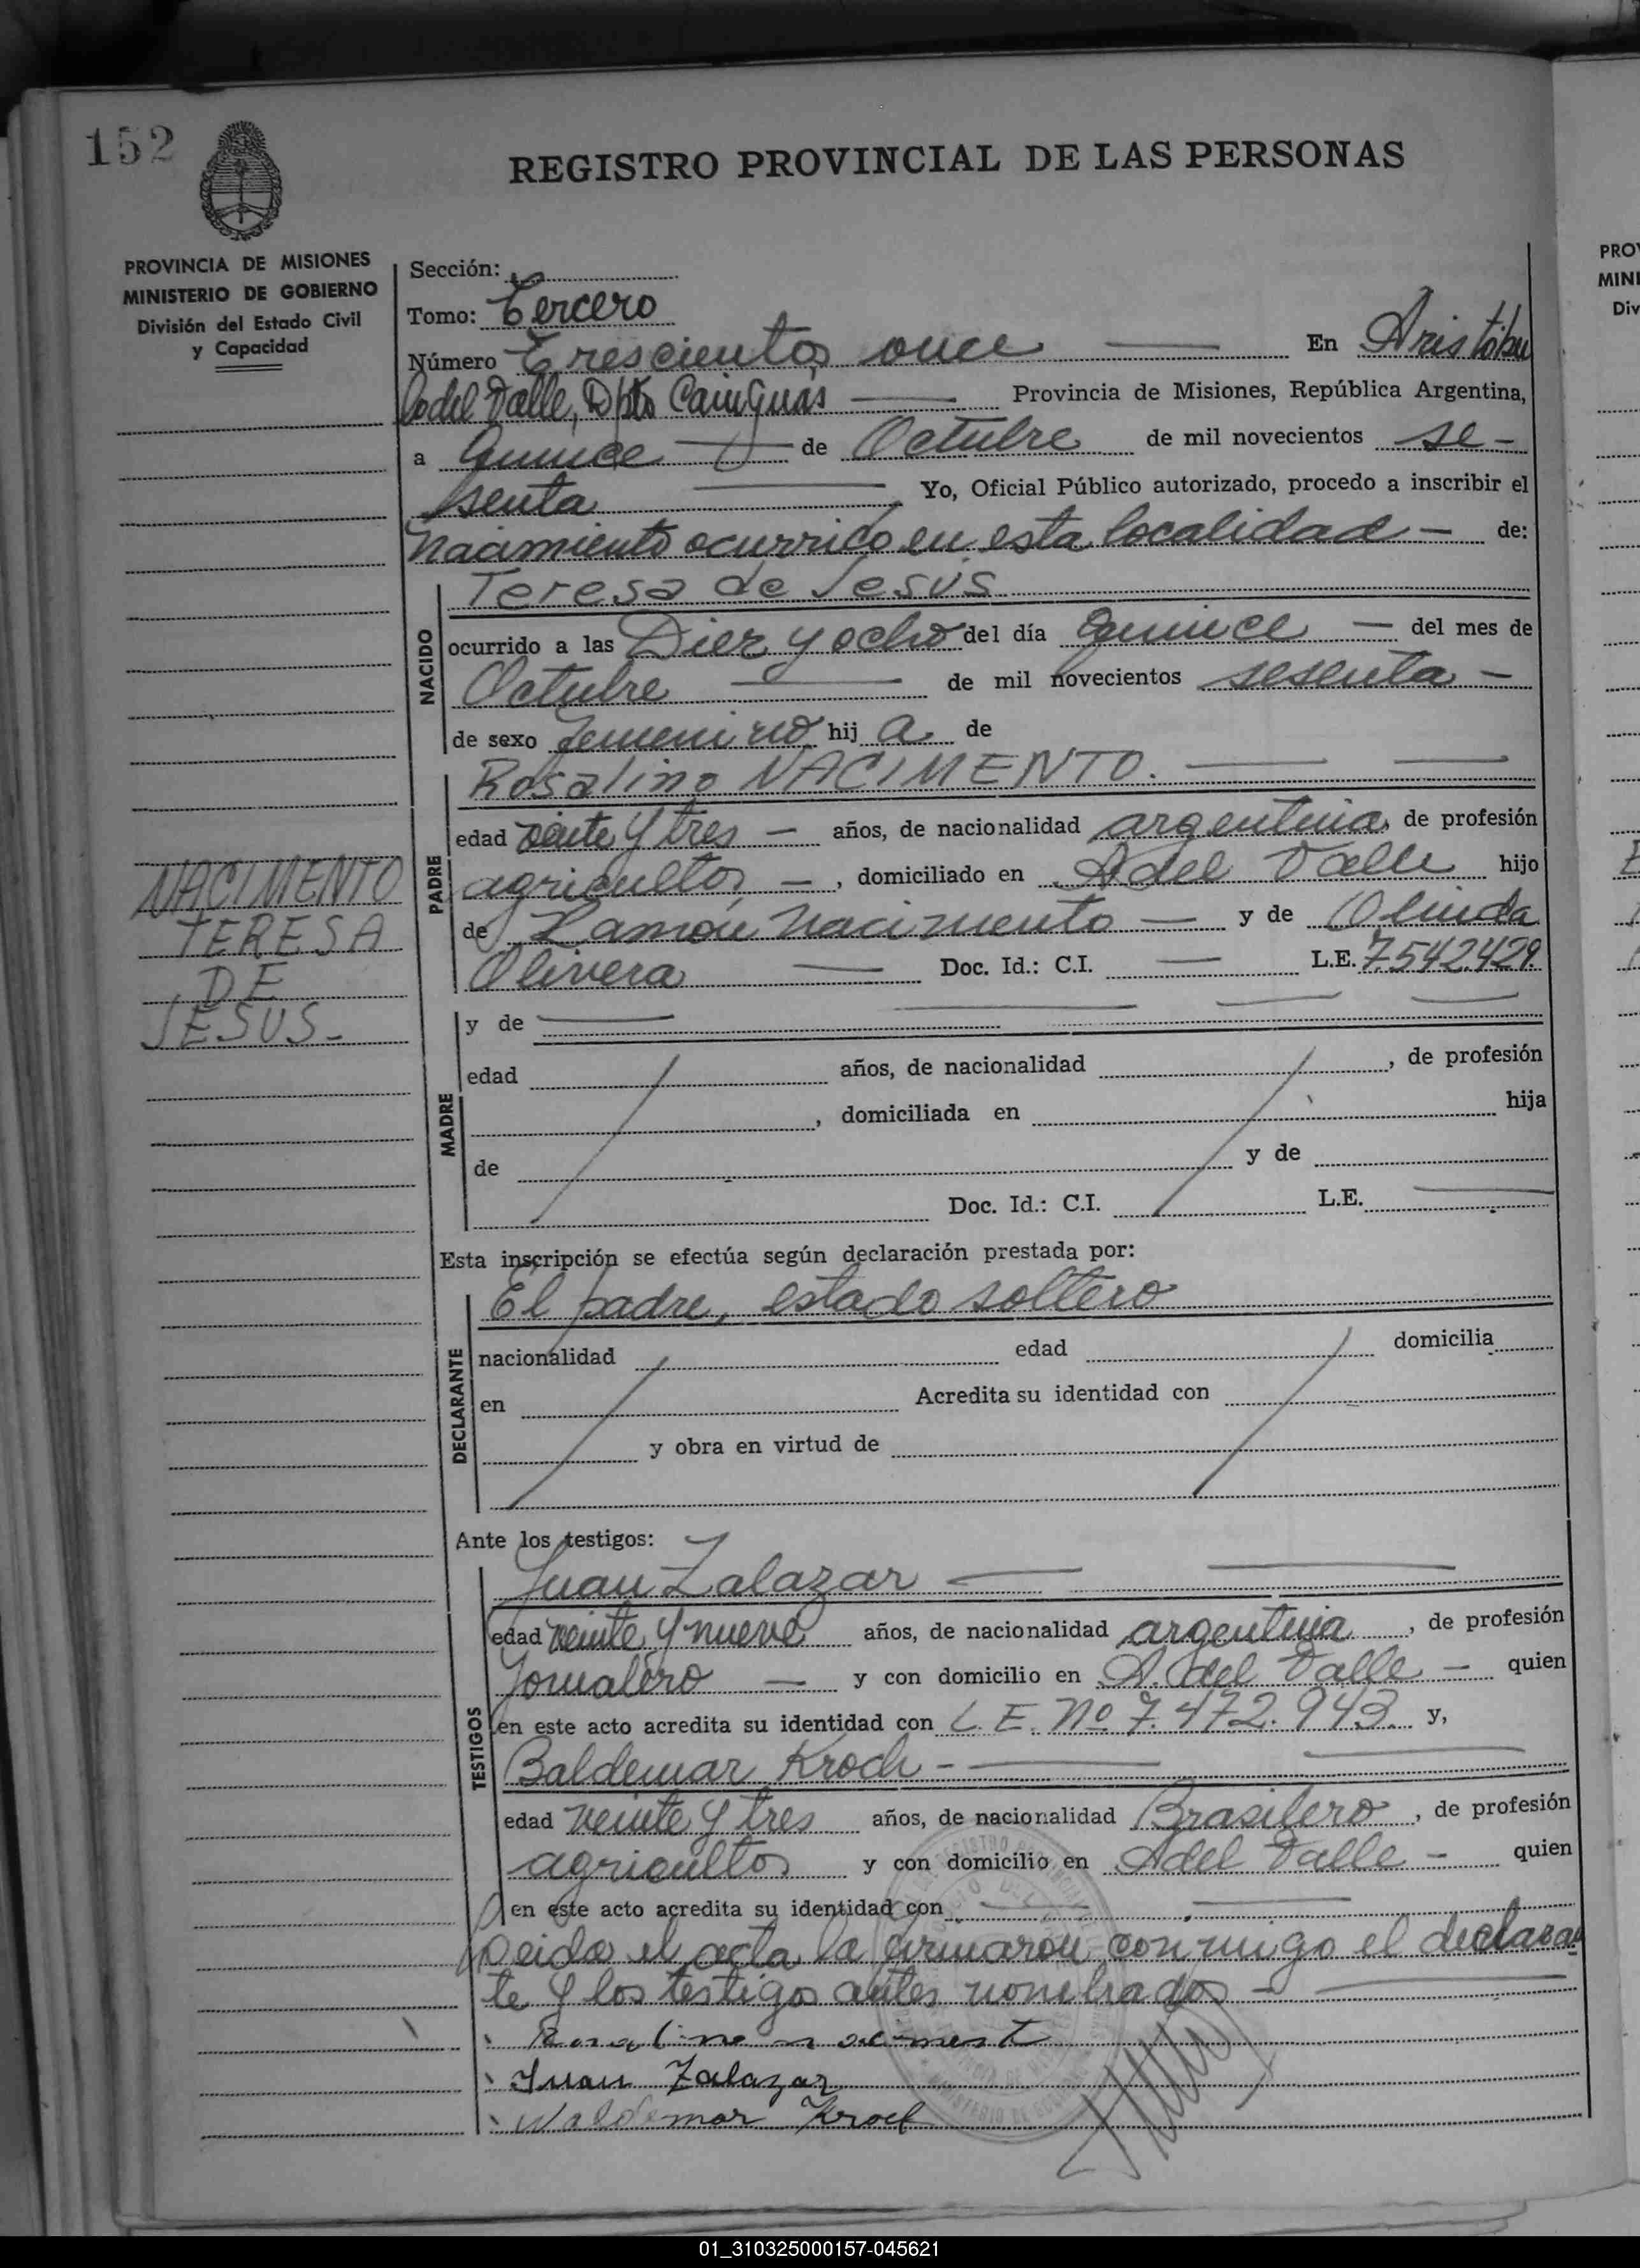 152
REGISTRO PROVINCIAL DE LAS PERSONAS
PROVINCIA DE MISIONES
MINISTERIO DE GOBIERNO
División del Estado Civil
y Capacidad
Sección:
Tomo: Tercero
Número Trescientos once En Aristóbu
lo del Valle, Dpto Cainguás Provincia de Misiones, República Argentina,
a Quince de Octubre de mil novecientos se-
senta Yo, Oficial Público autorizado, procedo a inscribir el
Nacimiento ocurrido en esta localidad — de:
NACIDO
Teresa de Jesús
ocurrido a las Diez y ocho del día Quince — del mes de
Octubre de mil novecientos sesenta —
de sexo femenino hij a de
PADRE
Rosalino NACIMENTO.
edad veinte y tres — años, de nacionalidad argentina, de profesión
agricultor, — , domiciliado en A del Valle hijo
de Ramón Nacimento — y de Olinda
Olivera — Doc. Id.: C.I. — L.E. 7.542.429.
NACIMENTO
TERESA
DE
JESUS.-
MADRE
y de
edad años, de nacionalidad , de profesión
, domiciliada en hija
de y de
Doc. Id.: C.I. L.E.
Esta inscripción se efectúa según declaración prestada por:
DECLARANTE
El padre, estado soltero
nacionalidad edad domicilia
en Acredita su identidad con
y obra en virtud de
Ante los testigos:
TESTIGOS
Juan Zalazar —
edad veinte y nueve años, de nacionalidad argentina , de profesión
Jornalero — y con domicilio en A. del Valle — quien
en este acto acredita su identidad con L. E. Nº 7.472.943. y,
Baldemar Kroch -
edad veinte y tres años, de nacionalidad Brasilero , de profesión
agricultor y con domicilio en A del Valle — quien
en este acto acredita su identidad con
Leida el acta la firmaron conmigo el declaran
te y los testigos antes nombrados —
Juan Zalazar
Waldemar
01_310325000157-045621